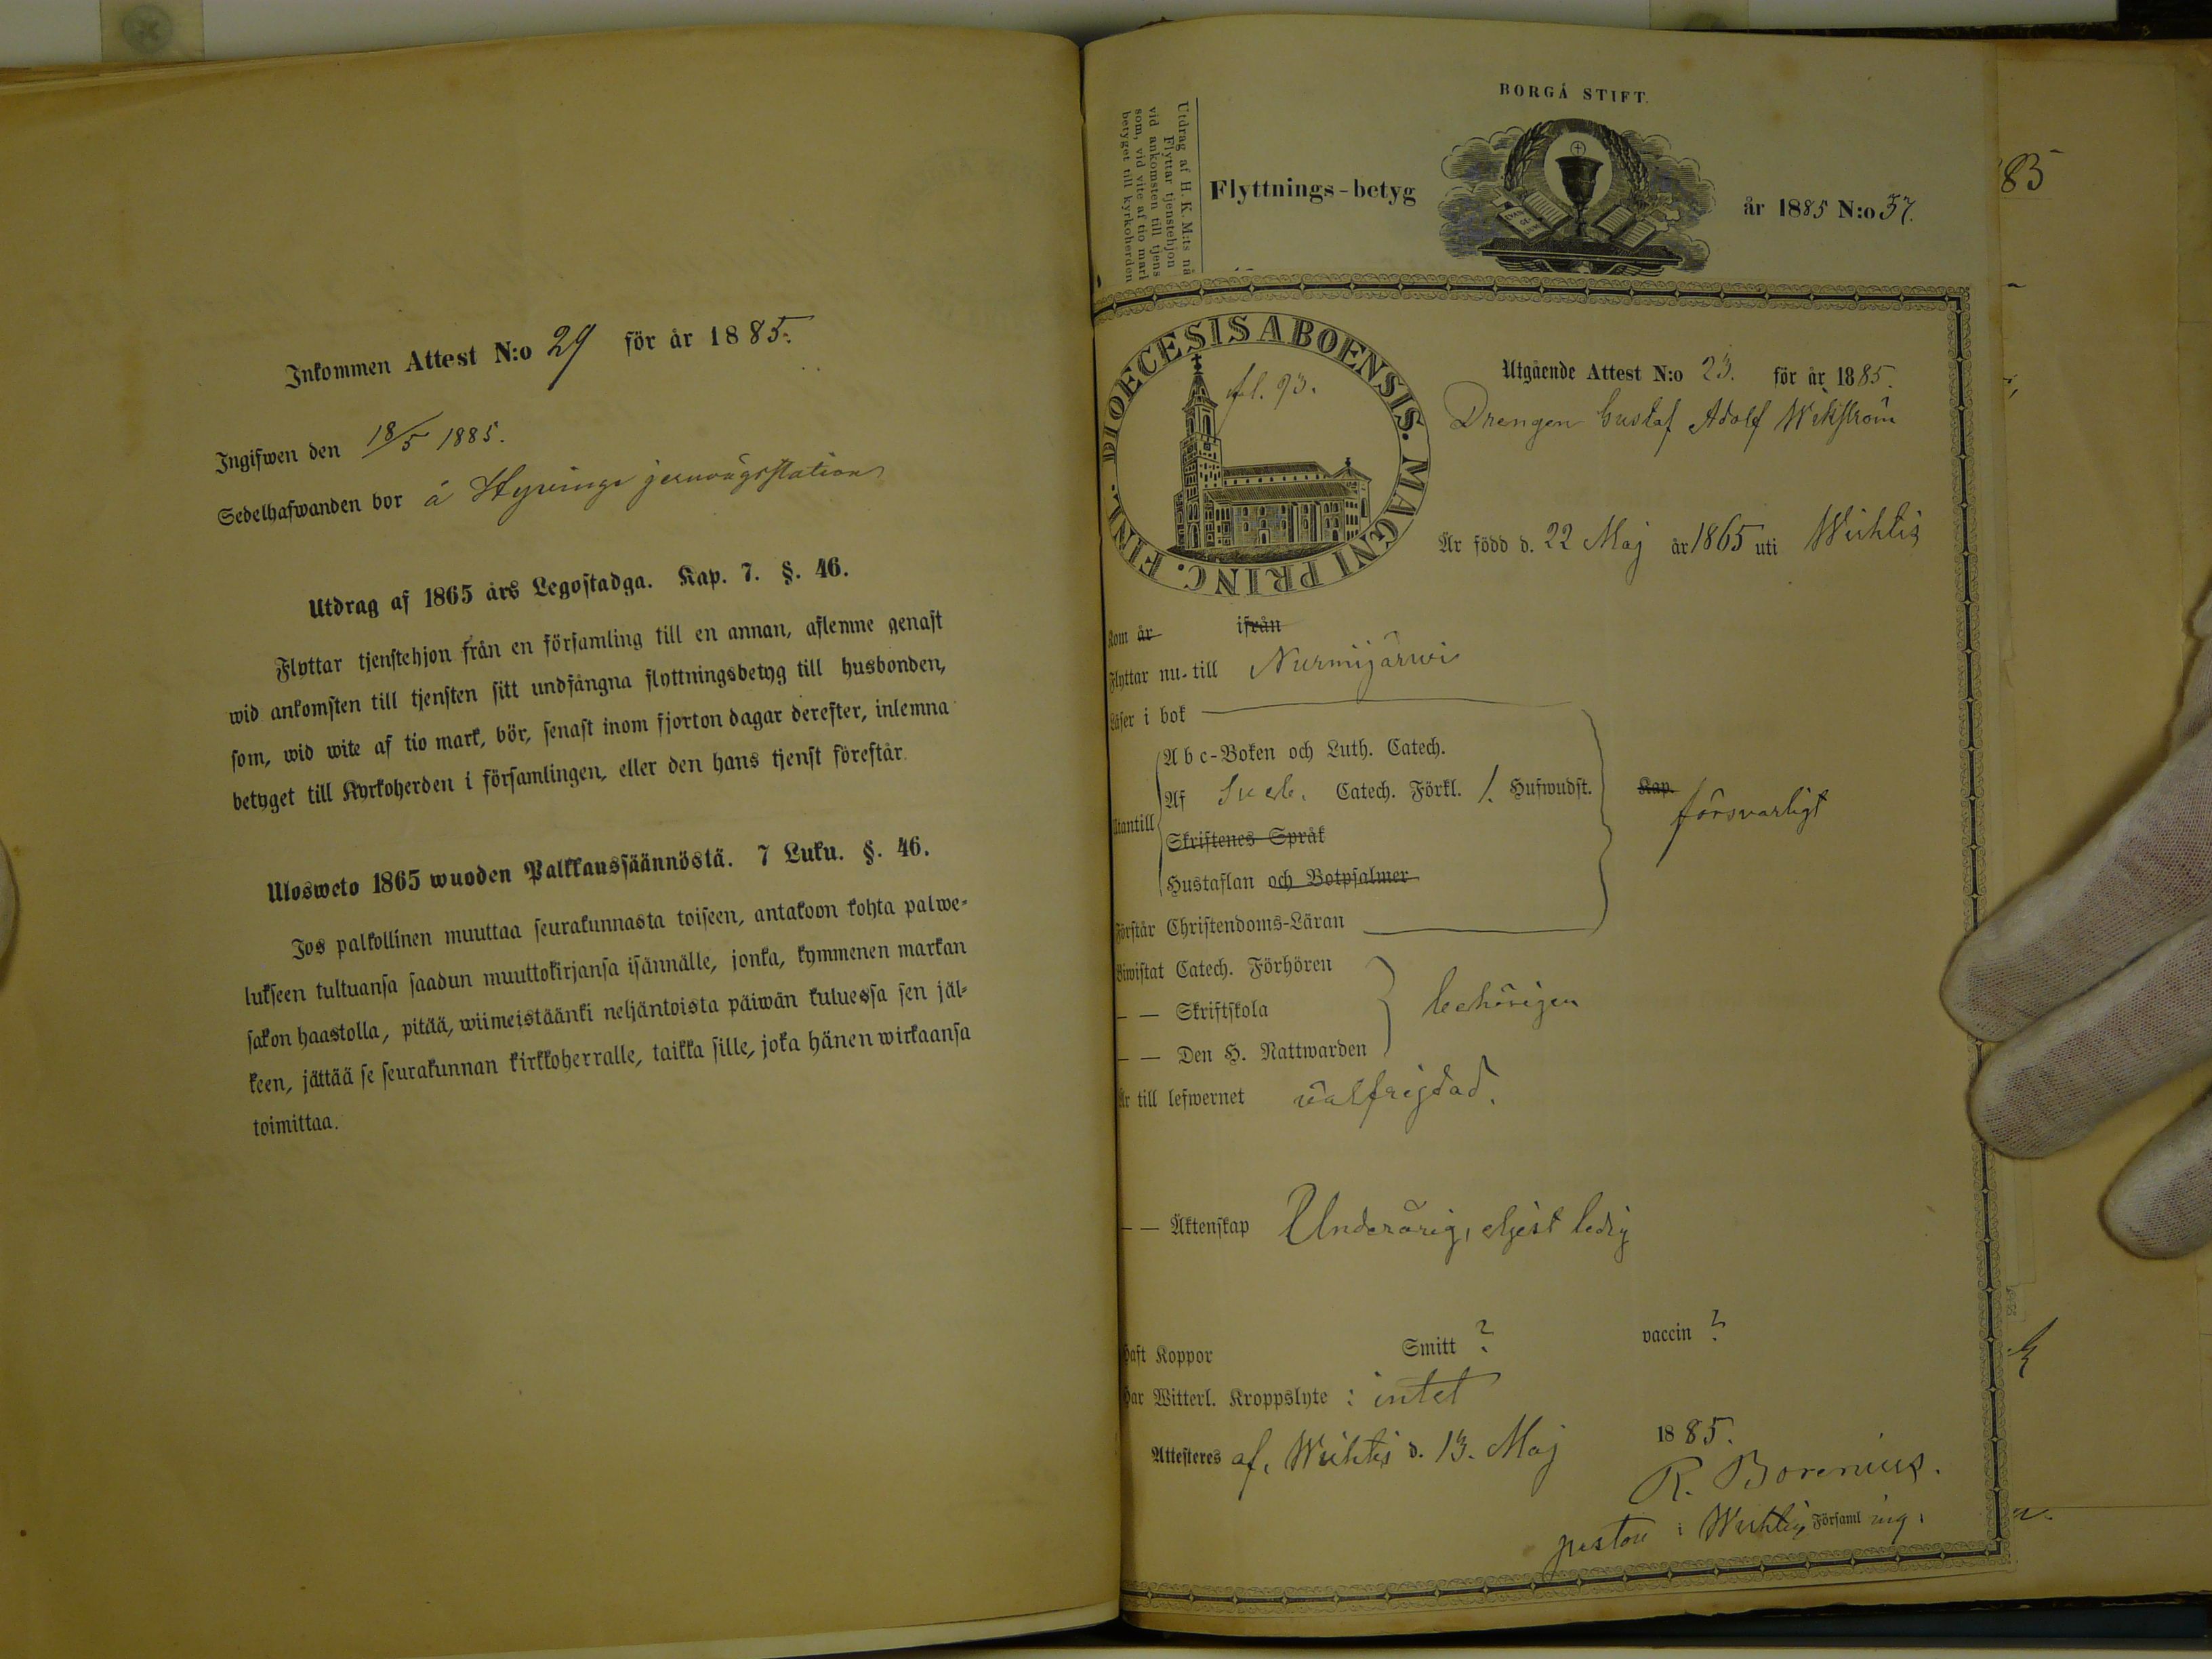 Inkommen Attest N:o 29 för år 1885.
Ingifwen den 18/5 1885.
Sedelhafwanden bor å Hyvinge jernvägsstation
Utdrag af 1865 års Legostadga. Kap. 7. §. 46.
Flyttar tjenstehjon från en församling till en annan, aflemne genast
wid ankomsten till tjensten sitt undfångna flyttningsbetyg till husbonden,
som, wid wite af tio mark, bör, senast inom fjorton dagar derefter, inlemna
betyget till Kyrkoherden i församlingen, eller den hans tjenst förestår.
Ulosweto 1865 wuoden Palkkaussäännöstä. 7 Luku. §. 46.
Jos palkollinen muuttaa seurakunnasta toiseen, antakoon kohta palwe-
lukseen tultuansa saadun muuttokirjansa isännälle, jonka, kymmenen markan
sakon haastolla, pitää, wiimeistäänki neljäntoista päiwän kuluessa sen jäl-
keen, jättää se seurakunnan kirkkoherralle, taikka sille, joka hänen wirkaansa
toimittaa.
BORGÅ STIFT.
Utdrag af H. K. M:ts nå
Flyttar tjenstehjon
vid ankomsten till tjens
som, vid vite af tio marl
betyget till kyrkoherden
Flyttnings-betyg
år 1885 N:o 37.
DIOECESIS ABOENSIS. MAGNI PRINC. FINL.
fl. 93.
Utgående Attest N:o 23. för år 1885.
Drengen Gustaf Adolf Wikström
Är född d. 22 Maj år 1865 uti Wichtis
Kom år ifrån
Flyttar nu till Nurmijärwi
Läser i bok
Abc-Boken och Luth. Catech.
Af Sveb. Catech. Förkl. 1. Hufwudst. Kap.
försvarligt
Utantill
Skriftenes Språk
Hustaflan och Botpsalmer
Förstår Christendoms-Läran
Biwistat Catech. Förhören
— — Skriftskola
behörigen
— — Den H. Nattwarden
Är till lefwernet välfrejdad.
— — Äktenskap Underårig, eljest ledig
Haft Koppor Smitt ? vaccin ?
Har Witterl. Kroppslyte : intet
Attesteres af. Wichtis d. 13. Maj 1885.
R. Borenius.
pastor i Wichtis Församling.